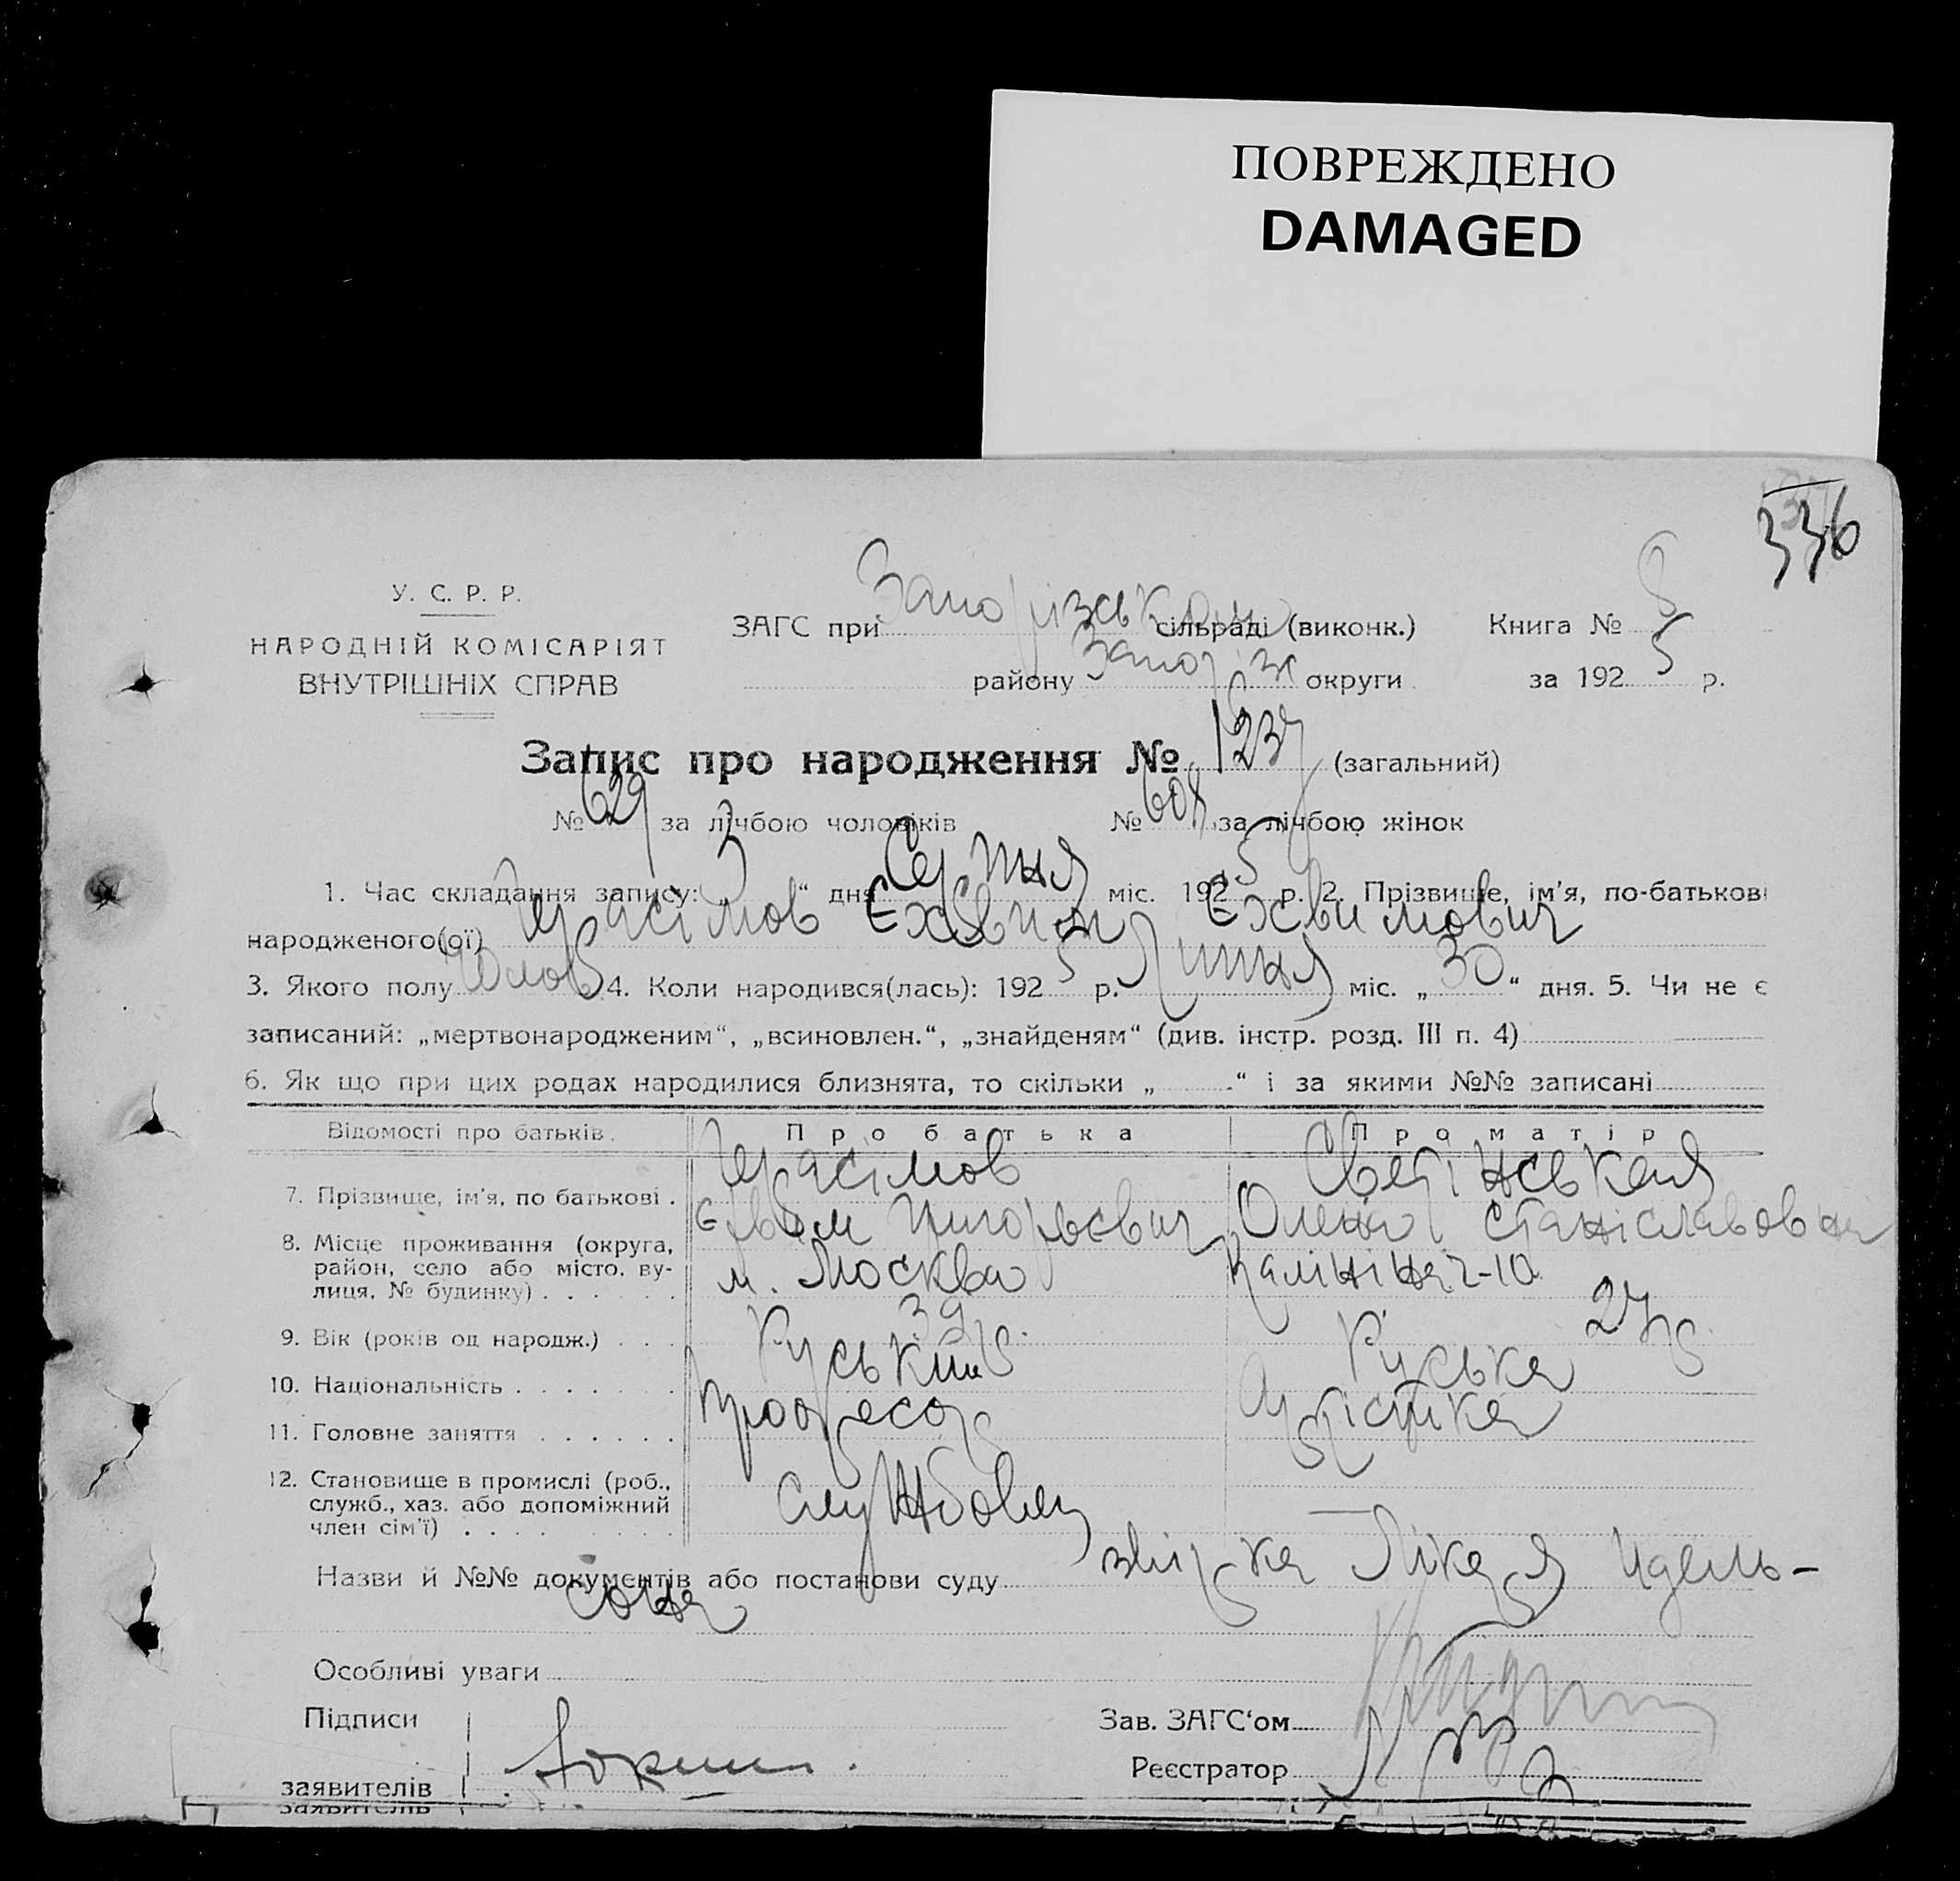 ПОВРЕЖДЕНО
DAMAGED
336
У. С. Р. Р.
НАРОДНІЙ КОМІСАРІЯТ
ВНУТРІШНІХ СПРАВ
ЗАГС при Запорізськом сільраді (виконк.) Книга № 8
району Запоріж округи за 1925 р.
Запис про народження № 1237 (загальний)
№ 629 за лічбою чоловіків № 608 за лічбою жінок
1. Час складання запису: „3“ дня Серпня міс. 1925 р. 2. Прізвище, ім'я, по-батькові
народженого(ої) Герасімов
3. Якого полу Чолов 4. Коли народився(лась): 1925 р. Липня міс. „30“ дня. 5. Чи не є
записаний: „мертвонародженим“, „всиновлен.“, „знайденям“ (див. інстр. розд. III п. 4)
6. Як що при цих родах народилися близнята, то скільки „ “ і за якими №№ записані
Відомості про батьків. Про батька Про матір
7. Прізвище, ім'я, по батькові . Герасімов
Григорьєвич Олена Станіславовна
8. Місце проживання (округа, район, село або місто, вулиця, № будинку) . . . . . . м. Москва Калініна 2-10
9. Вік (років од народж.) . . . 39 р. 27 р.
10. Національність . . . . . . . Руський Руська
11. Головне заняття . . . . . . професор Артістка
12. Становище в промислі (роб., служб., хаз. або допоміжний член сім'ї) . . . . Службовец —
Назви й №№ документів або постанови суду звірка Лікаря Идель-
сона
Особливі уваги
Підписи
заявителів
Зав. ЗАГС'ом
Реєстратор
заявителів